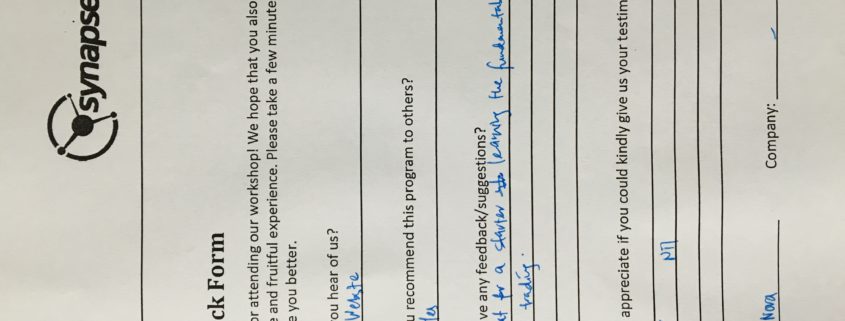 synapse
ck Form
or attending our workshop! We hope that you also
e and fruitful experience. Please take a few minute
e you better.
you hear of us?
Website
u recommend this program to others?
Yes
ve any feedback/suggestions?
for a starter learning the fundamental
trading.
appreciate if you could kindly give us your testim
Nil
Nora Company: -